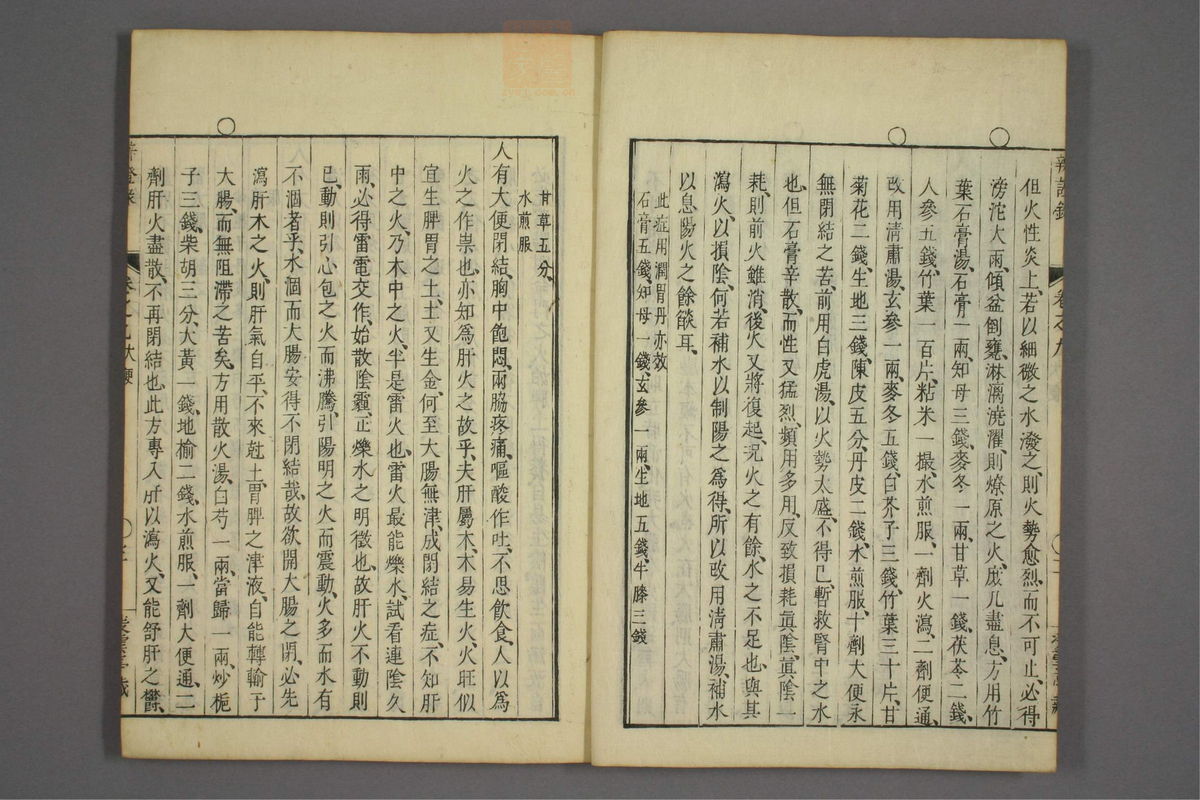 但火性炎上、若以細微之水潑之、則火勢愈烈、而不可止、必得
滂沱大雨、傾盆倒甕、淋漓澆濯、則燎原之火、庶几盡息、方用竹
葉石膏湯、石膏一兩、知母三錢、麥冬一兩、甘草一錢、茯苓二錢、
人參五錢、竹葉一百片、粘米一撮、水煎服、一劑火瀉、二劑便通、
改用清肅湯、玄參一兩、麥冬五錢、白芥子三錢、竹葉三十片、甘
菊花二錢、生地三錢、陳皮五分、丹皮二錢、水煎服、十劑大便永
無閉結之苦、前用白虎湯、以火勢太盛、不得已暫救腎中之水
也、但石膏辛散、而性又猛烈、頻用多用、反致損耗眞陰、眞陰一
耗、則前火雖消、後火又將復起、况火之有餘、水之不足也、與其
瀉火、以損陰、何若補水以制陽之爲得、所以改用清肅湯、補水
以息陽火之餘燄耳、
此症用潤胃丹亦效
石膏五錢、知母一錢、玄參一兩、生地五錢、牛膝三錢
甘草五分、
水煎服
人有大便閉結、胸中飽悶、兩脇疼痛、嘔酸作吐、不思飲食、人以爲
火之作祟也、亦知爲肝火之故乎、夫肝屬木、木易生火、火旺似
宜生脾胃之土、土又生金、何至大腸無津、成閉結之症、不知肝
中之火、乃木中之火、半是雷火也、雷火最能爍水、試看連陰久
雨、必得雷電交作、始散陰霾、正爍水之明徵也、故肝火不動則
已、動則引心包之火而沸騰、引陽明之火而震動、火多而水有
不涸者乎、水涸而大腸安得不閉結哉、故欲開大腸之閉、必先
瀉肝木之火、則肝氣自平、不來尅土、胃脾之津液、自能轉輸于
大腸、而無阻滯之苦矣、方用散火湯、白芍一兩、當歸一兩、炒梔
子三錢、柴胡三分、大黃一錢、地榆二錢、水煎服、一劑大便通、二
劑肝火盡散、不再閉結也、此方專入肝以瀉火、又能舒肝之鬱、